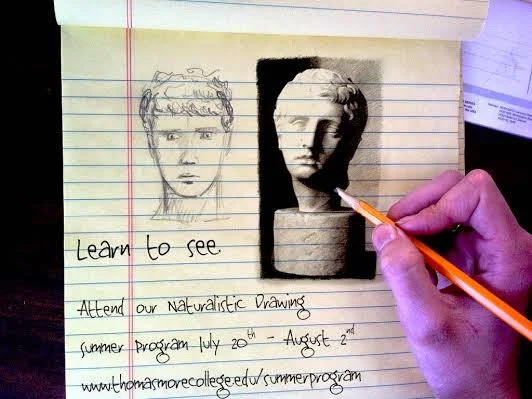 Learn to see.
Attend our Naturalistic Drawing
summer program July 20th - August 2nd
www.thomasmorecollege.edu/summerprogram